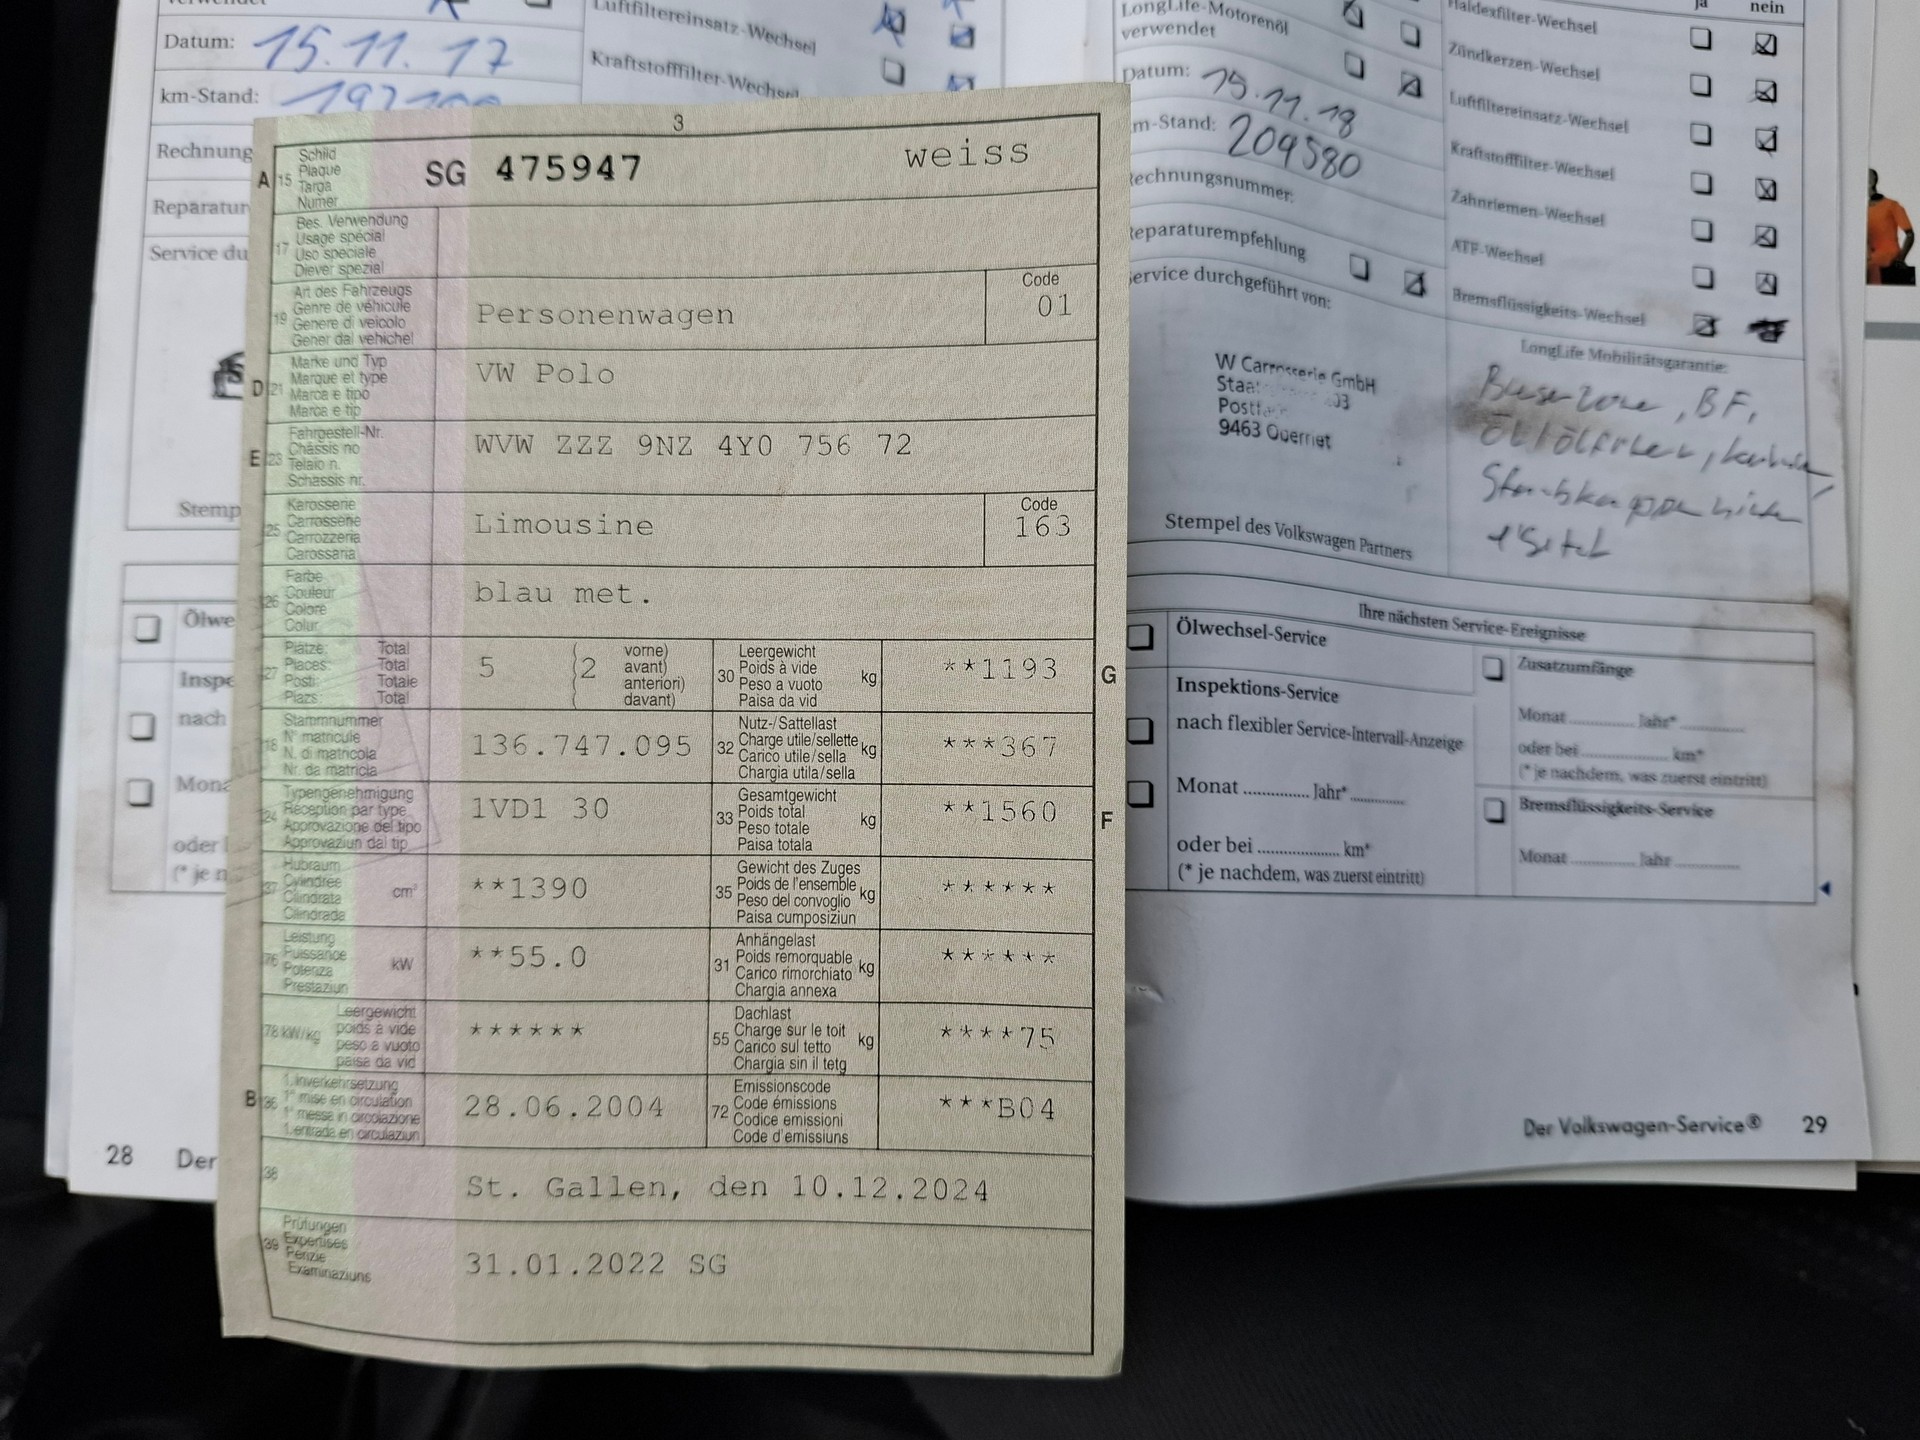 Luftfiltereinsatz-Wechsel
Datum: 15.11.17
Kraftstofffilter-Wechsel
km-Stand:
Rechnung
Reparatur
Service du
Stemp
Ölwe
Inspe
nach
Mona
oder
(* je n
28 Der
3
A 15 Schild
Plaque
Targa
Numer
SG 475947 weiss
17 Bes. Verwendung
Usage spécial
Uso speciale
Diever spezial
19 Art des Fahrzeugs
Genre de véhicule
Genere di veicolo
Gener dal vehichel
Personenwagen
Code
01
D 21 Marke und Typ
Marque et type
Marca e tipo
Marca e tip
VW Polo
E 23 Fahrgestell-Nr.
Châssis no
Telaio n.
Schassis nr.
WVW ZZZ 9NZ 4Y0 756 72
25 Karosserie
Carrosserie
Carrozzeria
Carossaria
Limousine
Code
163
26 Farbe
Couleur
Colore
Colur
blau met.
27 Plätze: Total
Places: Total
Posti: Totale
Plazs: Total
5 2 vorne)
avant)
anteriori)
davant)
30 Leergewicht
Poids à vide
Peso a vuoto
Paisa da vid
kg **1193 G
18 Stammnummer
N° matricule
N. di matricola
Nr. da matricla
136.747.095
32 Nutz-/Sattellast
Charge utile/sellette
Carico utile/sella
Chargia utila/sella
kg ***367
24 Typengenehmigung
Réception par type
Approvazione del tipo
Approvaziun dal tip
1VD1 30
33 Gesamtgewicht
Poids total
Peso totale
Paisa totala
kg **1560 F
37 Hubraum
Cylindrée
Cilindrata
Cilindrada
cm³ **1390
35 Gewicht des Zuges
Poids de l'ensemble
Peso del convoglio
Paisa cumposiziun
kg ******
76 Leistung
Puissance
Potenza
Prestaziun
kW **55.0
31 Anhängelast
Poids remorquable
Carico rimorchiato
Chargia annexa
kg ******
78 kW/kg Leergewicht
poids à vide
peso a vuoto
paisa da vid
******
55 Dachlast
Charge sur le toit
Carico sul tetto
Chargia sin il tetg
kg ****75
B 36 1. Inverkehrsetzung
1re mise en circulation
1a messa in circolazione
1. entrada en circulaziun
28.06.2004
72 Emissionscode
Code émissions
Codice emissioni
Code d'emissiuns
***B04
38
St. Gallen, den 10.12.2024
39 Prüfungen
Expertises
Perizie
Examinaziuns
31.01.2022 SG
LongLife-Motorenöl
verwendet
Datum: 15.11.18
m-Stand: 209580
echnungsnummer:
eparaturempfehlung
ervice durchgeführt von:
W Carrosserie GmbH
9463 Oberriet
Stempel des Volkswagen Partners
ja nein
Haldexfilter-Wechsel
Zündkerzen-Wechsel
Luftfiltereinsatz-Wechsel
Kraftstofffilter-Wechsel
Zahnriemen-Wechsel
ATF-Wechsel
Bremsflüssigkeits-Wechsel
LongLife Mobilitätsgarantie:
Ihre nächsten Service-Ereignisse
Ölwechsel-Service
Inspektions-Service
nach flexibler Service-Intervall-Anzeige
Monat .............. Jahr* ............
oder bei ................. km*
(* je nachdem, was zuerst eintritt)
Zusatzumfänge
Monat ............ Jahr* ............
oder bei ............ km*
(* je nachdem, was zuerst eintritt)
Bremsflüssigkeits-Service
Monat ............ Jahr ............
Der Volkswagen-Service® 29